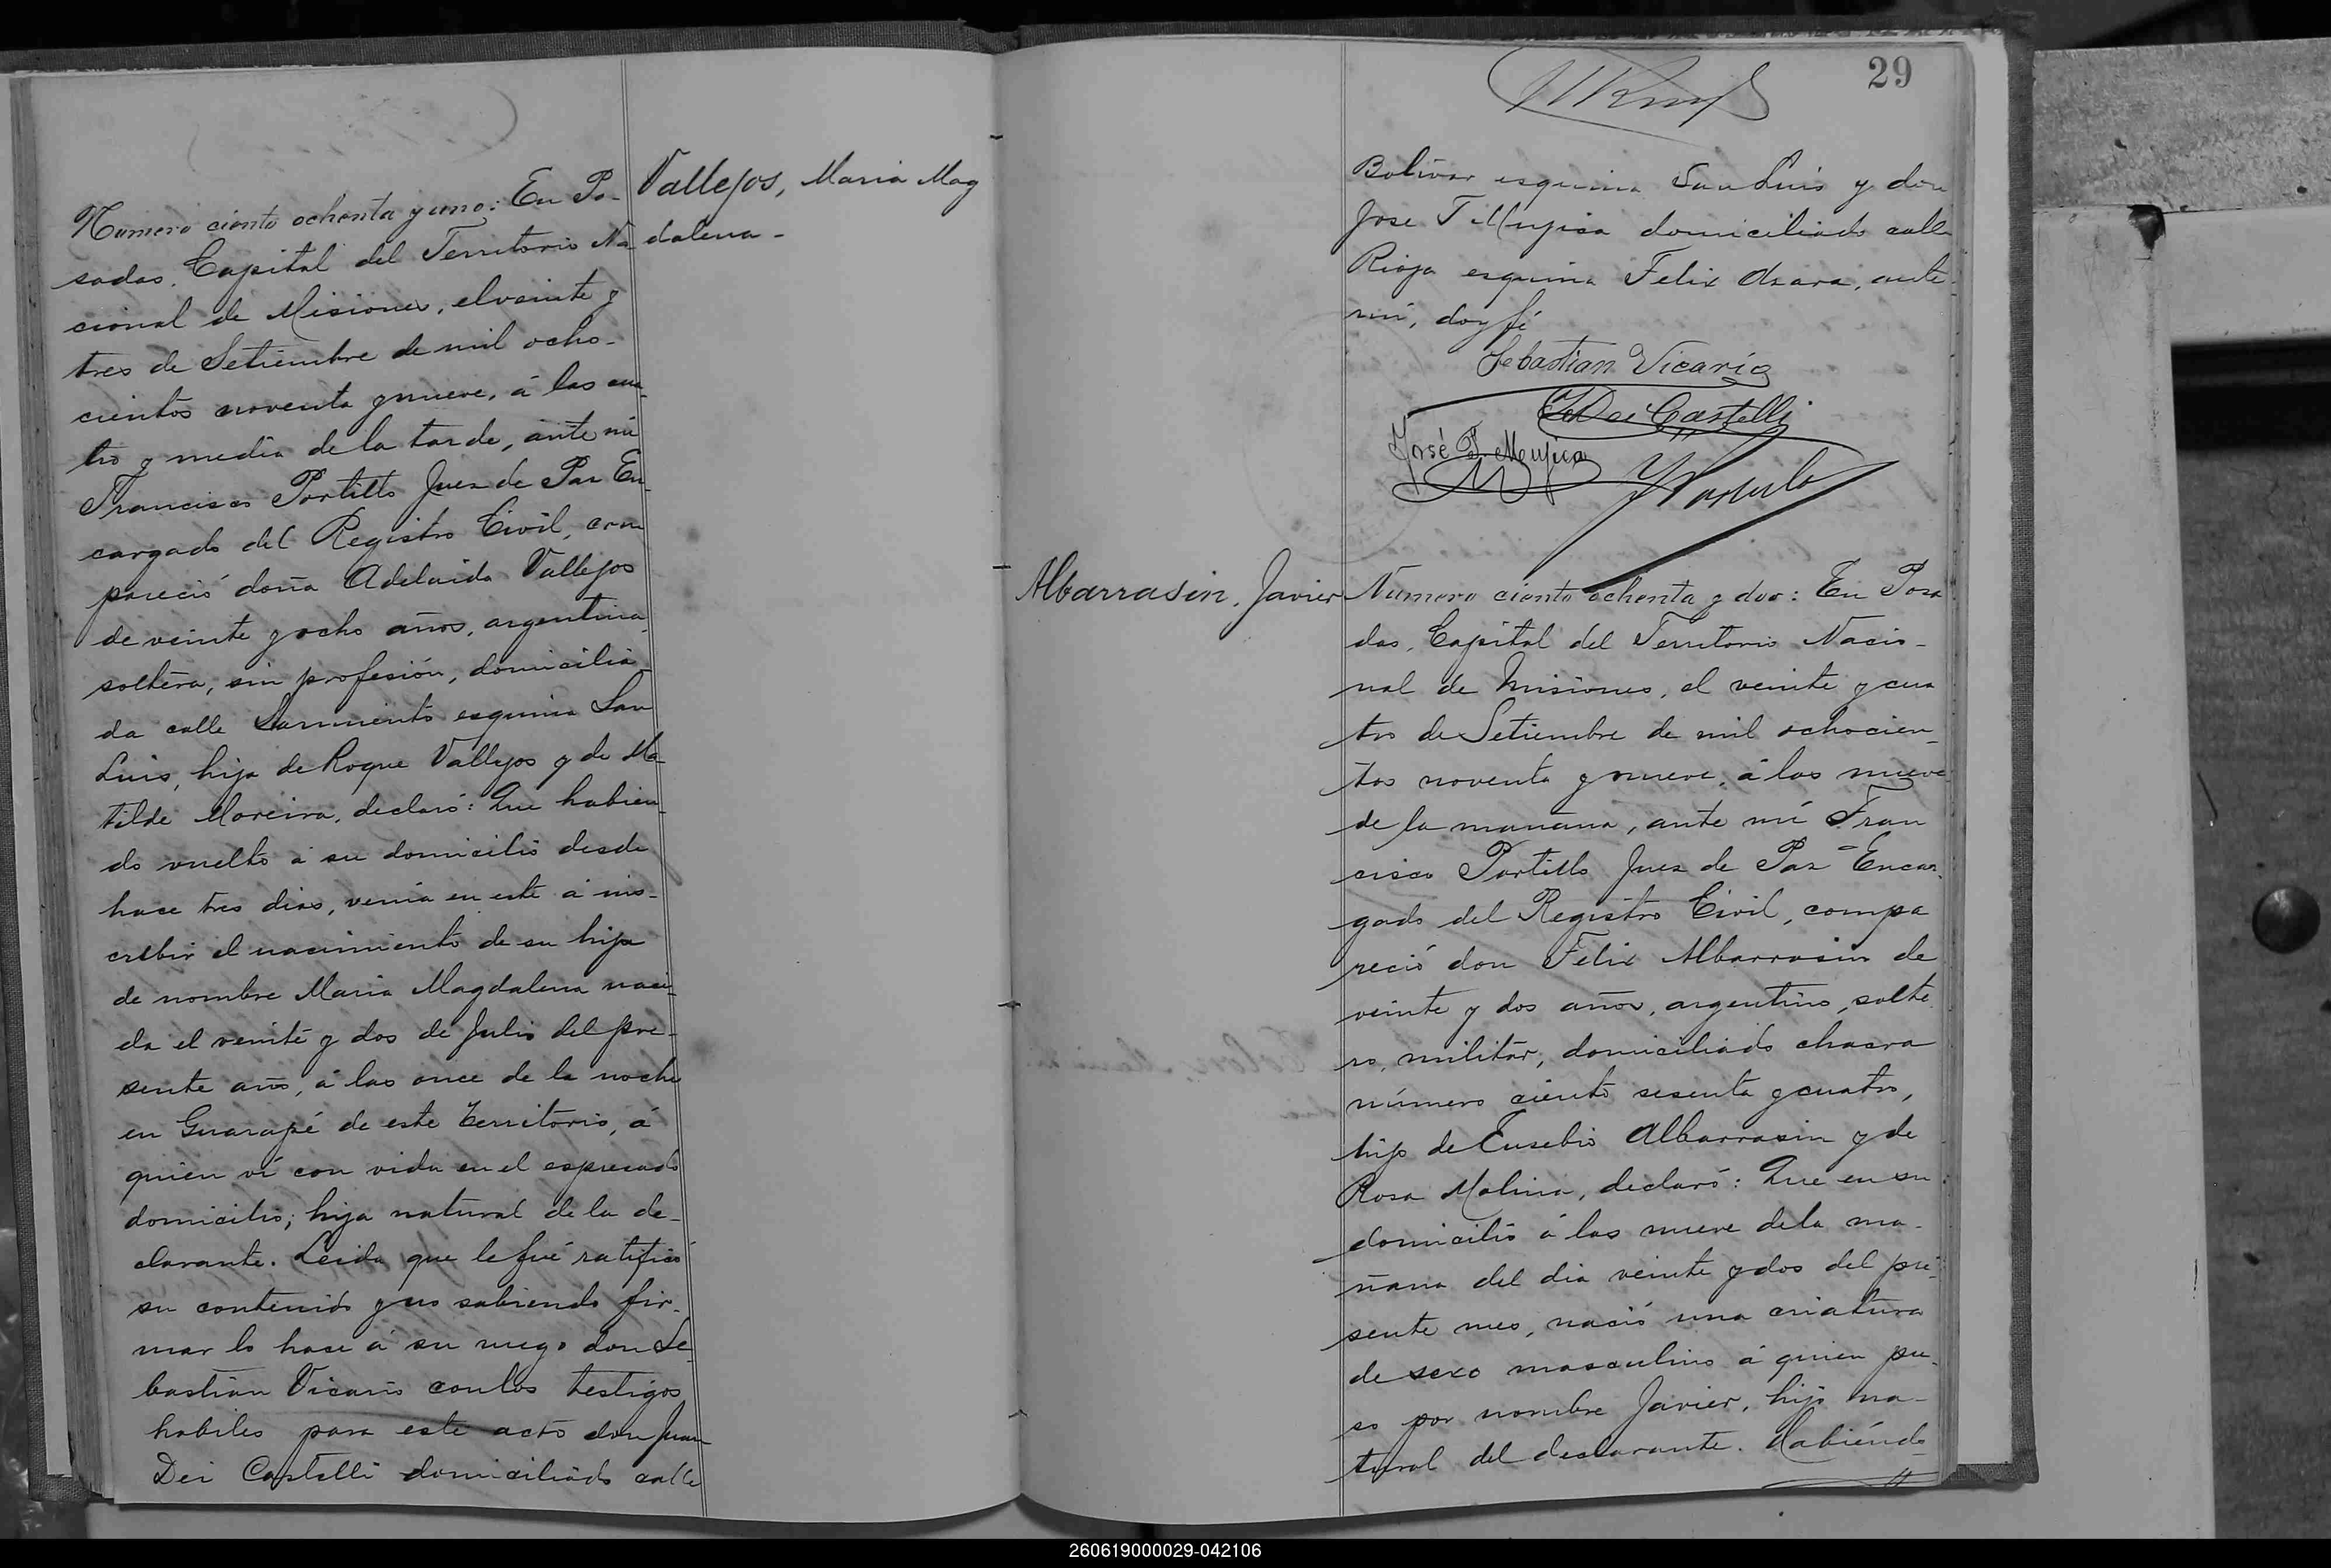 Numero ciento ochenta y uno: En Po-
sadas, Capital del Territorio Na
cional de Misiones, el veinte y
tres de Setiembre de mil ocho-
cientos noventa y nueve, á las cua
tro y media de la tarde, ante mi
Francisco Portillo Juez de Paz En
cargado del Registro Civil, com
pareció doña Adelaida Vallejos
de veinte y ocho años, argentina,
soltera, sin profesión, domicilia
da calle Sarmiento esquina San
Luis, hija de Roque Vallejos y de Ma
tilde Moreira, declaró: Que habien
do vuelto á su domicilio desde
hace tres dias, venía en este á ins-
cribir el nacimiento de su hija
de nombre Maria Magdalena naci
da el veinte y dos de Julio del pre-
sente año, á las once de la noche
en Guarapé de este Territorio, á
quien ví con vida en el espresado
domicilio; hija natural de la de-
clarante. Leida que le fué ratificó
su contenido y no sabiendo fir-
mar lo hace á su ruego don Se
bastian Vicario con los testigos
habiles para este acto don Juan
Dei Castelli domiciliado calle
Vallejos, Maria Mag
dalena-
29
Bolivar esquina San Luis y don
Jose T Mujica domiciliado calle
Rioja esquina Felix Azara, ante
mi, doy fé
Sebastian Vicario
Dei Castelli
José T. Mujica
Albarrasin, Javier
Numero ciento ochenta y dos: En Posa
das, Capital del Territorio Nacio-
nal de Misiones, el veinte y cua
tro de Setiembre de mil ochocien-
tos noventa y nueve, á las nueve
de la mañana, ante mi Fran
cisco Portillo Juez de Paz Encar-
gado del Registro Civil, compa
reció don Felix Albarrasin de
veinte y dos años, argentino, solte
ro, militar, domiciliado chacra
número ciento sesenta y cuatro,
hijo de Eusebio Albarrasin y de
Rosa Molina, declaró: Que en su
domicilio á las nueve de la ma-
ñana del dia veinte y dos del pre-
sente mes, nació una criatura
de sexo masculino á quien pu-
so por nombre Javier, hijo na-
tural del declarante. Habiendo
260619000029-042106